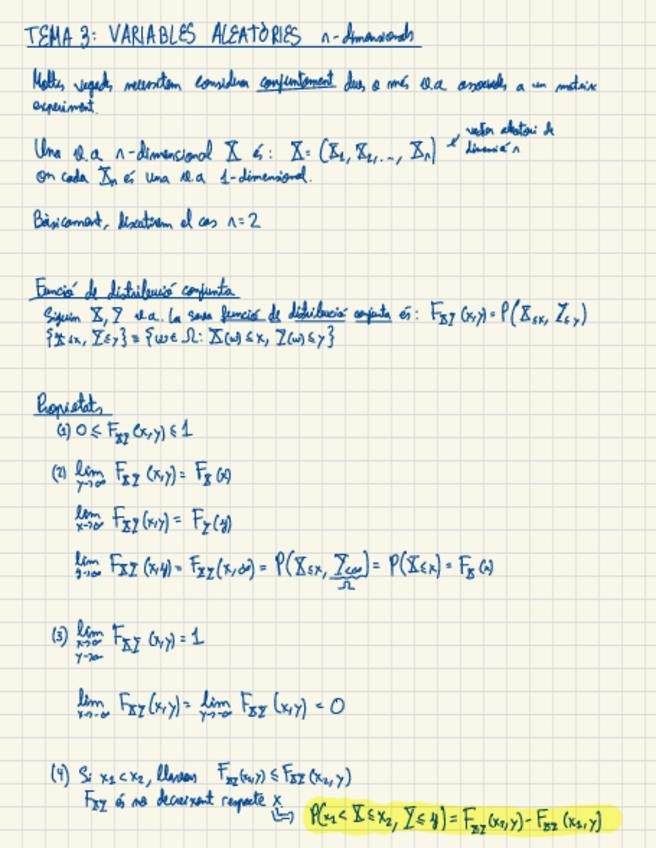 TEMA 3: VARIABLES ALEATÒRIES n-dimensionals
Moltes vegades necessitem considerar conjuntament dues o més v.a associades a un mateix
experiment.
Una v.a n-dimensional X és: X = (X₁, X₂, ..., Xₙ) vector aleatori de
dimensió n
on cada Xₙ és una v.a 1-dimensional.
Bàsicament, discutirem el cas n=2
Funció de distribució conjunta
Siguin X, Y v.a. La seva funció de distribució conjunta és: F_XY (x,y) = P(X≤x, Y≤y)
{X≤x, Y≤y} = {ω∈Ω: X(ω)≤x, Y(ω)≤y}
Propietats
(1) 0 ≤ F_XY (x,y) ≤ 1
(2) lim y→∞ F_XY (x,y) = F_X (x)
lim x→∞ F_XY (x,y) = F_Y (y)
lim y→∞ F_XY (x,y) = F_XY (x,∞) = P(X≤x, Y≤∞) = P(X≤x) = F_X (x)
Ω
(3) lim x→∞ y→∞ F_XY (x,y) = 1
lim x→-∞ F_XY (x,y) = lim y→-∞ F_XY (x,y) = 0
(4) Si x₁<x₂, llavors F_XY (x₁,y) ≤ F_XY (x₂,y)
F_XY és no decreixent respecte x
↳ P(x₁ < X ≤ x₂, Y ≤ y) = F_XY (x₂,y) - F_XY (x₁,y)